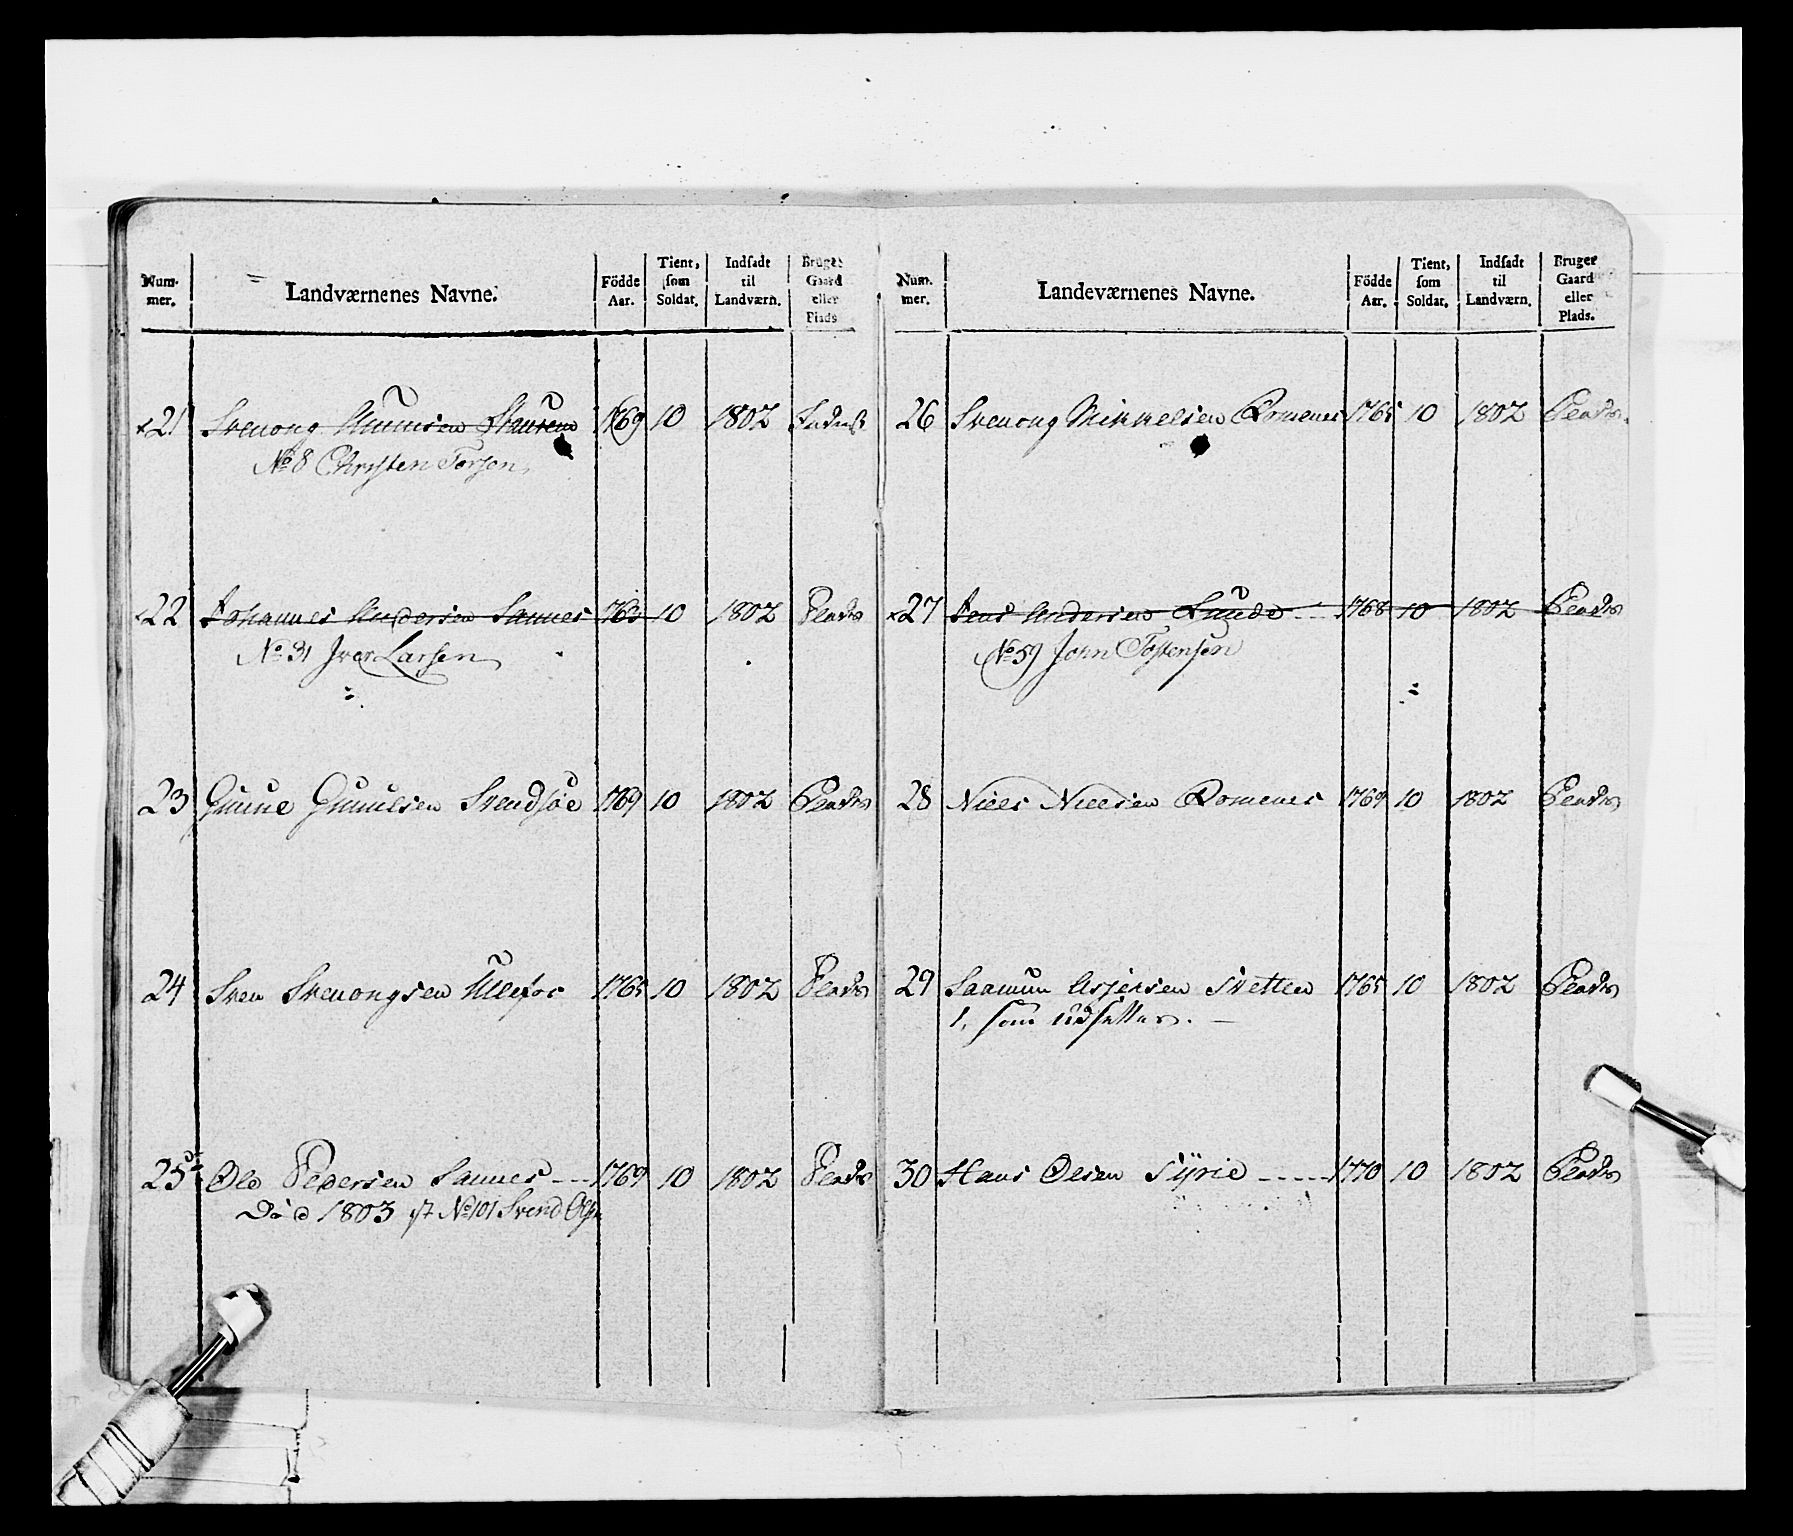 Num-
mer.
Landværnenes Navne.
Födde
Aar.
Tient,
som
Soldat.
Indsadt
til
Landværn.
Bruger
Gaard
eller
Plads
x21 Svenong Stausem 1769 10 1802
No 8 Christen Torsen,
x22 Johannes Andersen Sannes 10 1802 Plads
No 31 Iver Larsen
23 Gunne Gunnelsen 1769 10 1802 Plads
24 Sven Svenongsen Ullefos 1765 10 1802 Plads
25 Ole Pedersen Sannes 1769 10 1802 Plads
Död 1803 No 101 Svend Ols
Num-
mer.
Landeværnenes Navne.
Födde
Aar.
Tient,
som
Soldat.
Indsadt
til
Landværn.
Bruger
Gaard
eller
Plads.
26 Svenong Mikkelsen Romenes 1765 10 1802 Plads
x27 Jens Andersen Lunde 1768 10 1802 Plads
No 59 John Tostensen
28 Niels Nielsen Romenes 1769 10 1802 Plads
29 Saamun 1765 10 1802 Plads
1, som udsættes.
30 Hans Olsen Tÿrie 1770 10 1802 Plads